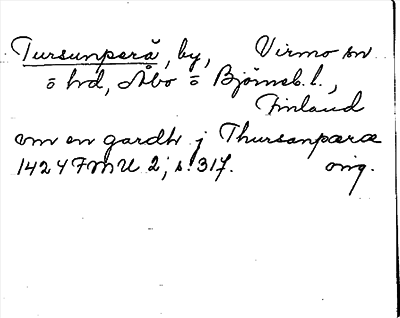 Tursunperä, by, Virmo sn
o hd, Åbo o Björneb. l.,
Finland
om en gardh j Thursanpæræ
1424 FMU 2, s. 317. orig.